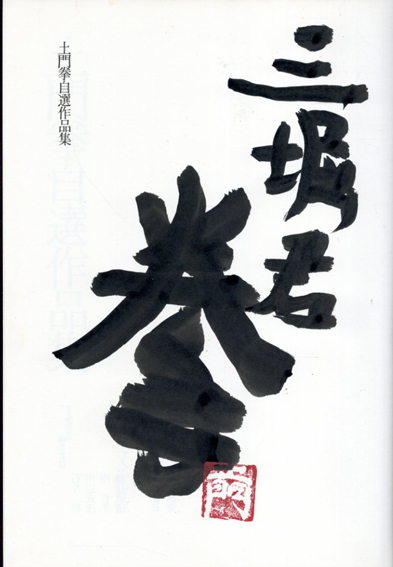 三堀君
拳
土門拳自選作品集